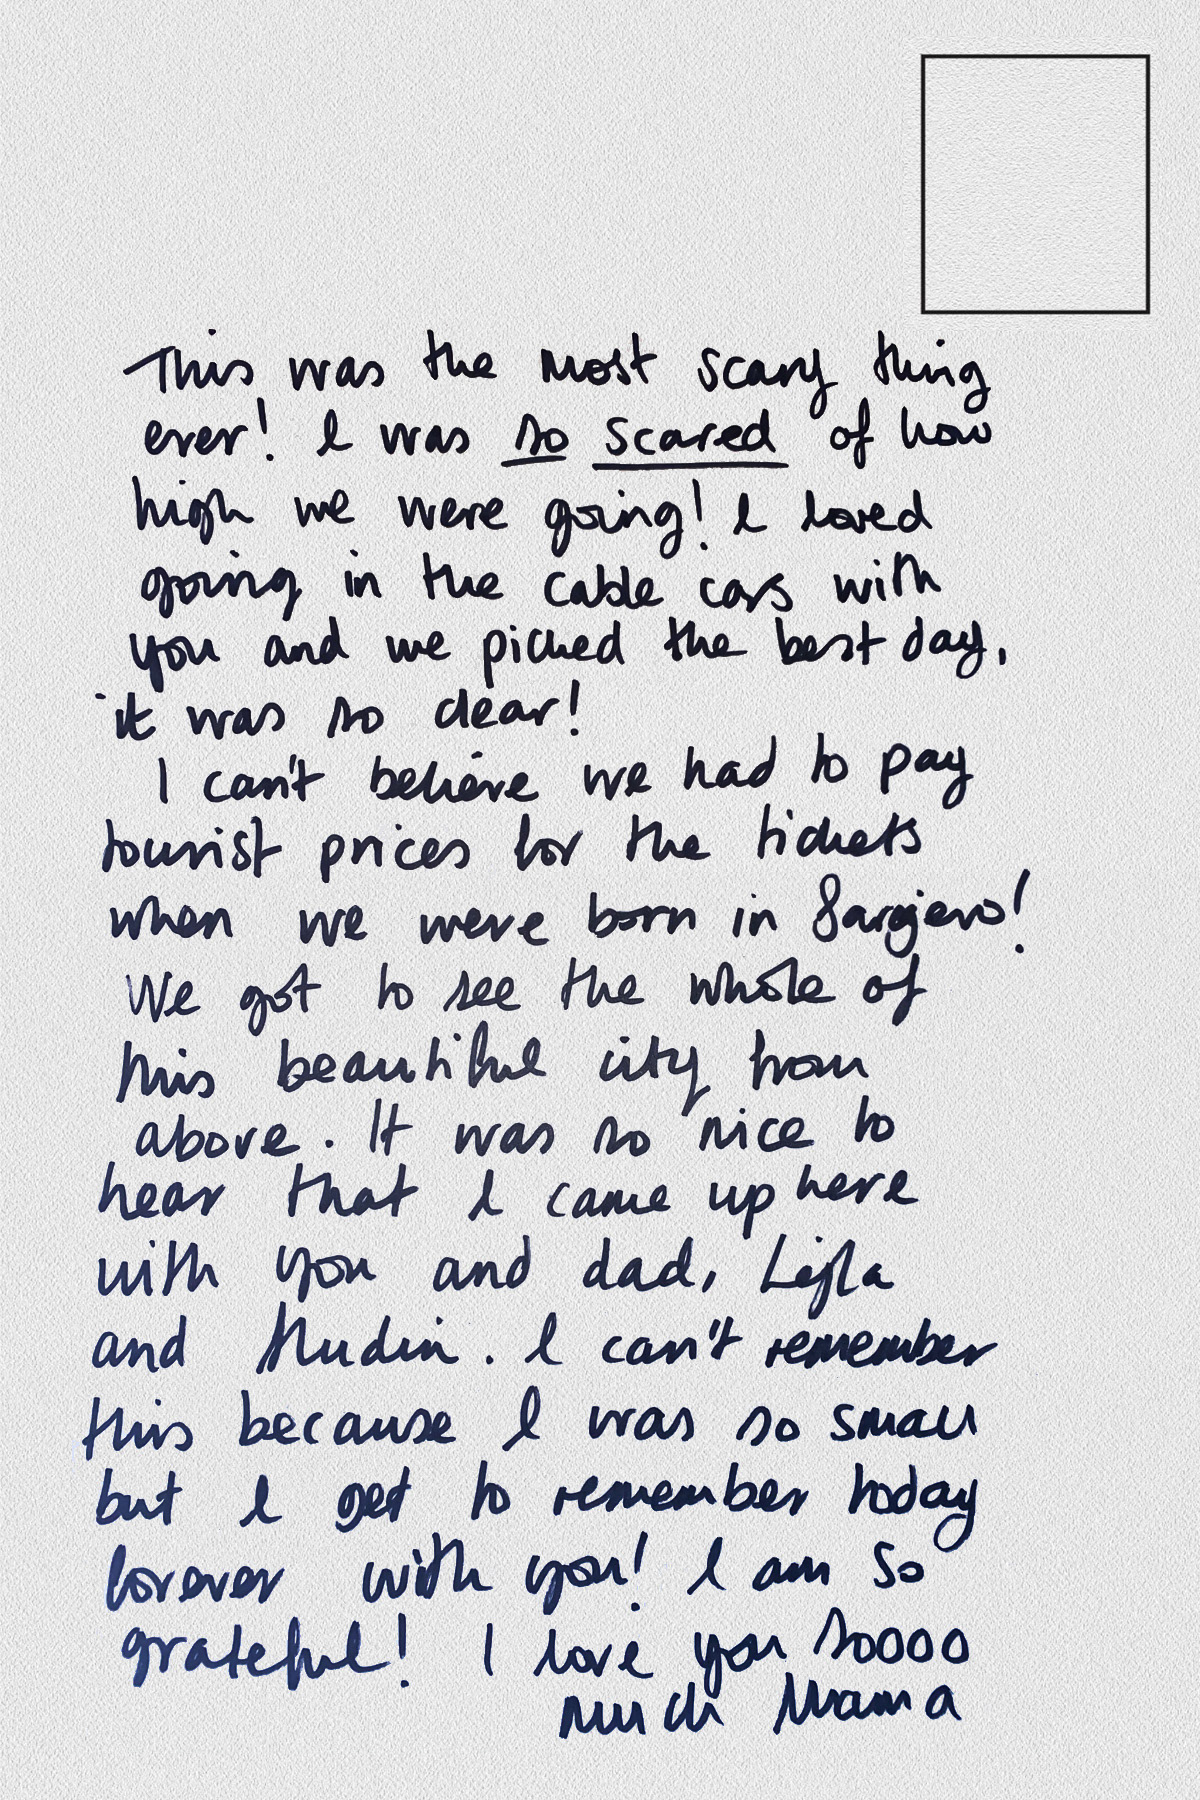 This was the most scary thing
ever! I was so scared of how
high we were going! I loved
going in the cable cars with
you and we picked the best day,
it was so clear!
I can't believe we had to pay
tourist prices for the tickets
when we were born in Sargjevo!
We got to see the whole of
this beautiful city from
above. It was so nice to
hear that I came up here
with you and dad, Lejla
and Nudin. I can't remember
this because I was so small
but I get to remember today
forever with you! I am so
grateful! I love you soooo
much Mama